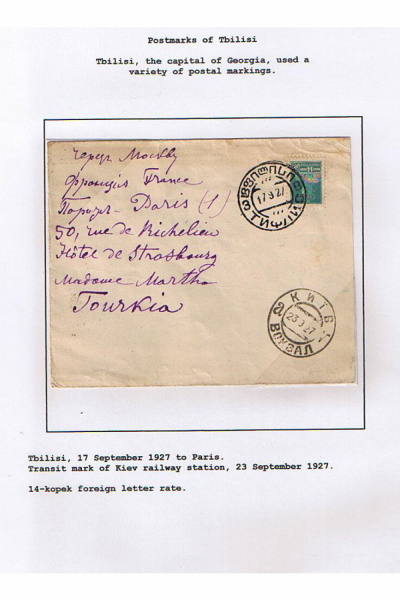 Postmarks of Tbilisi
Tbilisi, the capital of Georgia, used a
variety of postal markings.
Через Москву
Франція France
Париж Paris (1)
50, rue de Richelieu
Hôtel de Strasbourg
Madame Martha
Tourkia
17 9 27
КИЕВ
23 9 27
ВОКЗАЛ
Tbilisi, 17 September 1927 to Paris.
Transit mark of Kiev railway station, 23 September 1927.
14-kopek foreign letter rate.